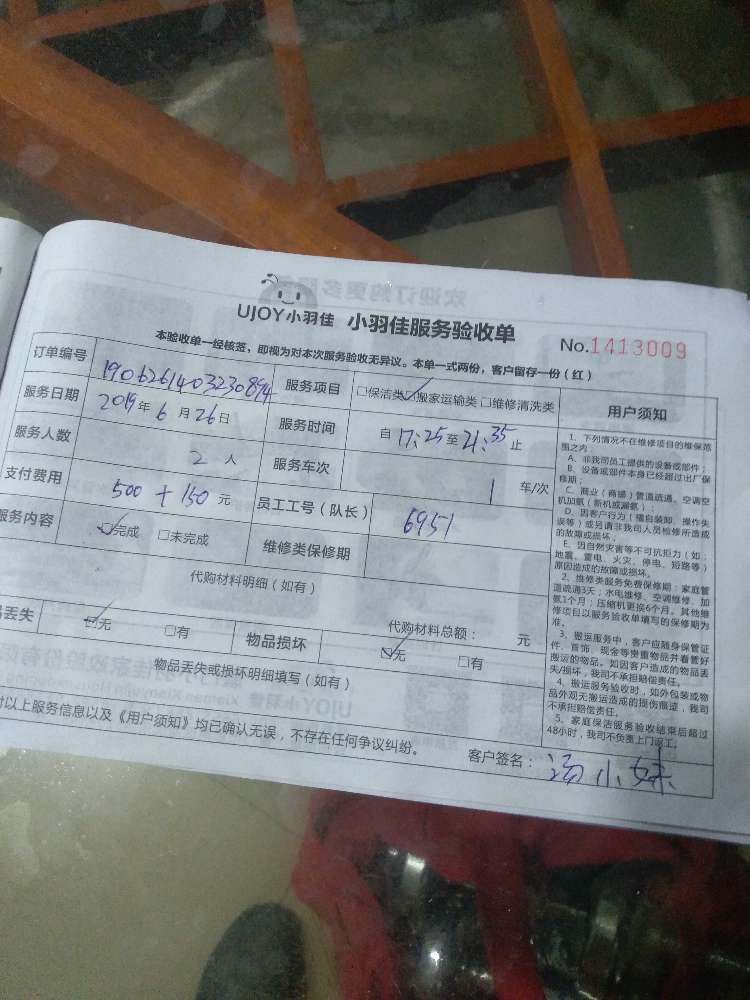 UJOY小羽佳 小羽佳服务验收单
No.1413009
本验收单一经核签，即视为对本次服务验收无异议。本单一式两份，客户留存一份（红）
订单编号 1906261403230894 服务项目 □保洁类☑搬家运输类□维修清洗类 用户须知
服务日期 2019年6月26日 服务时间 自17:25至21:35止
服务人数 2人 服务车次 1 车/次
支付费用 500+150元 员工工号（队长） 6951
服务内容 ☑完成 □未完成 维修类保修期
代购材料明细（如有）
代购材料总额： 元
丢失 ☑无 □有 物品损坏 ☑无 □有
物品丢失或损坏明细填写（如有）
对以上服务信息以及《用户须知》均已确认无误，不存在任何争议纠纷。
客户签名：汤小妹
1、下列情况不在维修项目的维保范
围之内：
A、非我司员工提供的设备或部件；
B、设备或部件本身已经超过出厂保
修期；
C、商业（商铺）管道疏通、空调空
机加氨（新机或漏氨）；
D、因客户行为（擅自装卸、操作失
误等）或另请非我司人员检修所造成
的故障或损坏。
E、因自然灾害等不可抗拒力（如：
地震、雷电、火灾、停电、短路等）
原因造成的故障或损坏。
2、维修类服务免费保修期：家庭管
道疏通3天；水电维修、空调维修、加
氨1个月；压缩机更换6个月。其他维
修项目以服务验收单填写的保修期为
准。
3、搬运服务中，客户应随身保管证
件、首饰、现金等贵重物品并看管好
搬运的物品。如因客户造成的物品丢
失/损坏，我司不承担赔偿责任。
4、搬运服务验收时，如外包装或物
品外观无搬运造成的损伤痕迹，我司
不承担赔偿责任。
5、家庭保洁服务验收结束后超过
48小时，我司不负责上门返工。